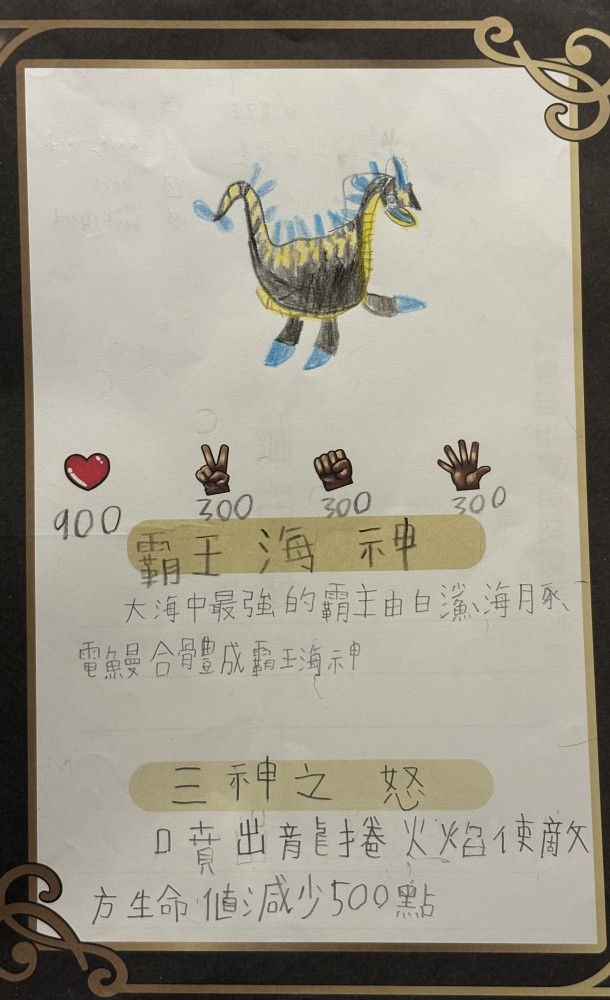 900 300 300 300
霸王海神
大海中最強的霸主由白鯊、海豚、
電鰻合體成霸王海神
三神之怒
口噴出龍捲火焰使敵
方生命值減少500點